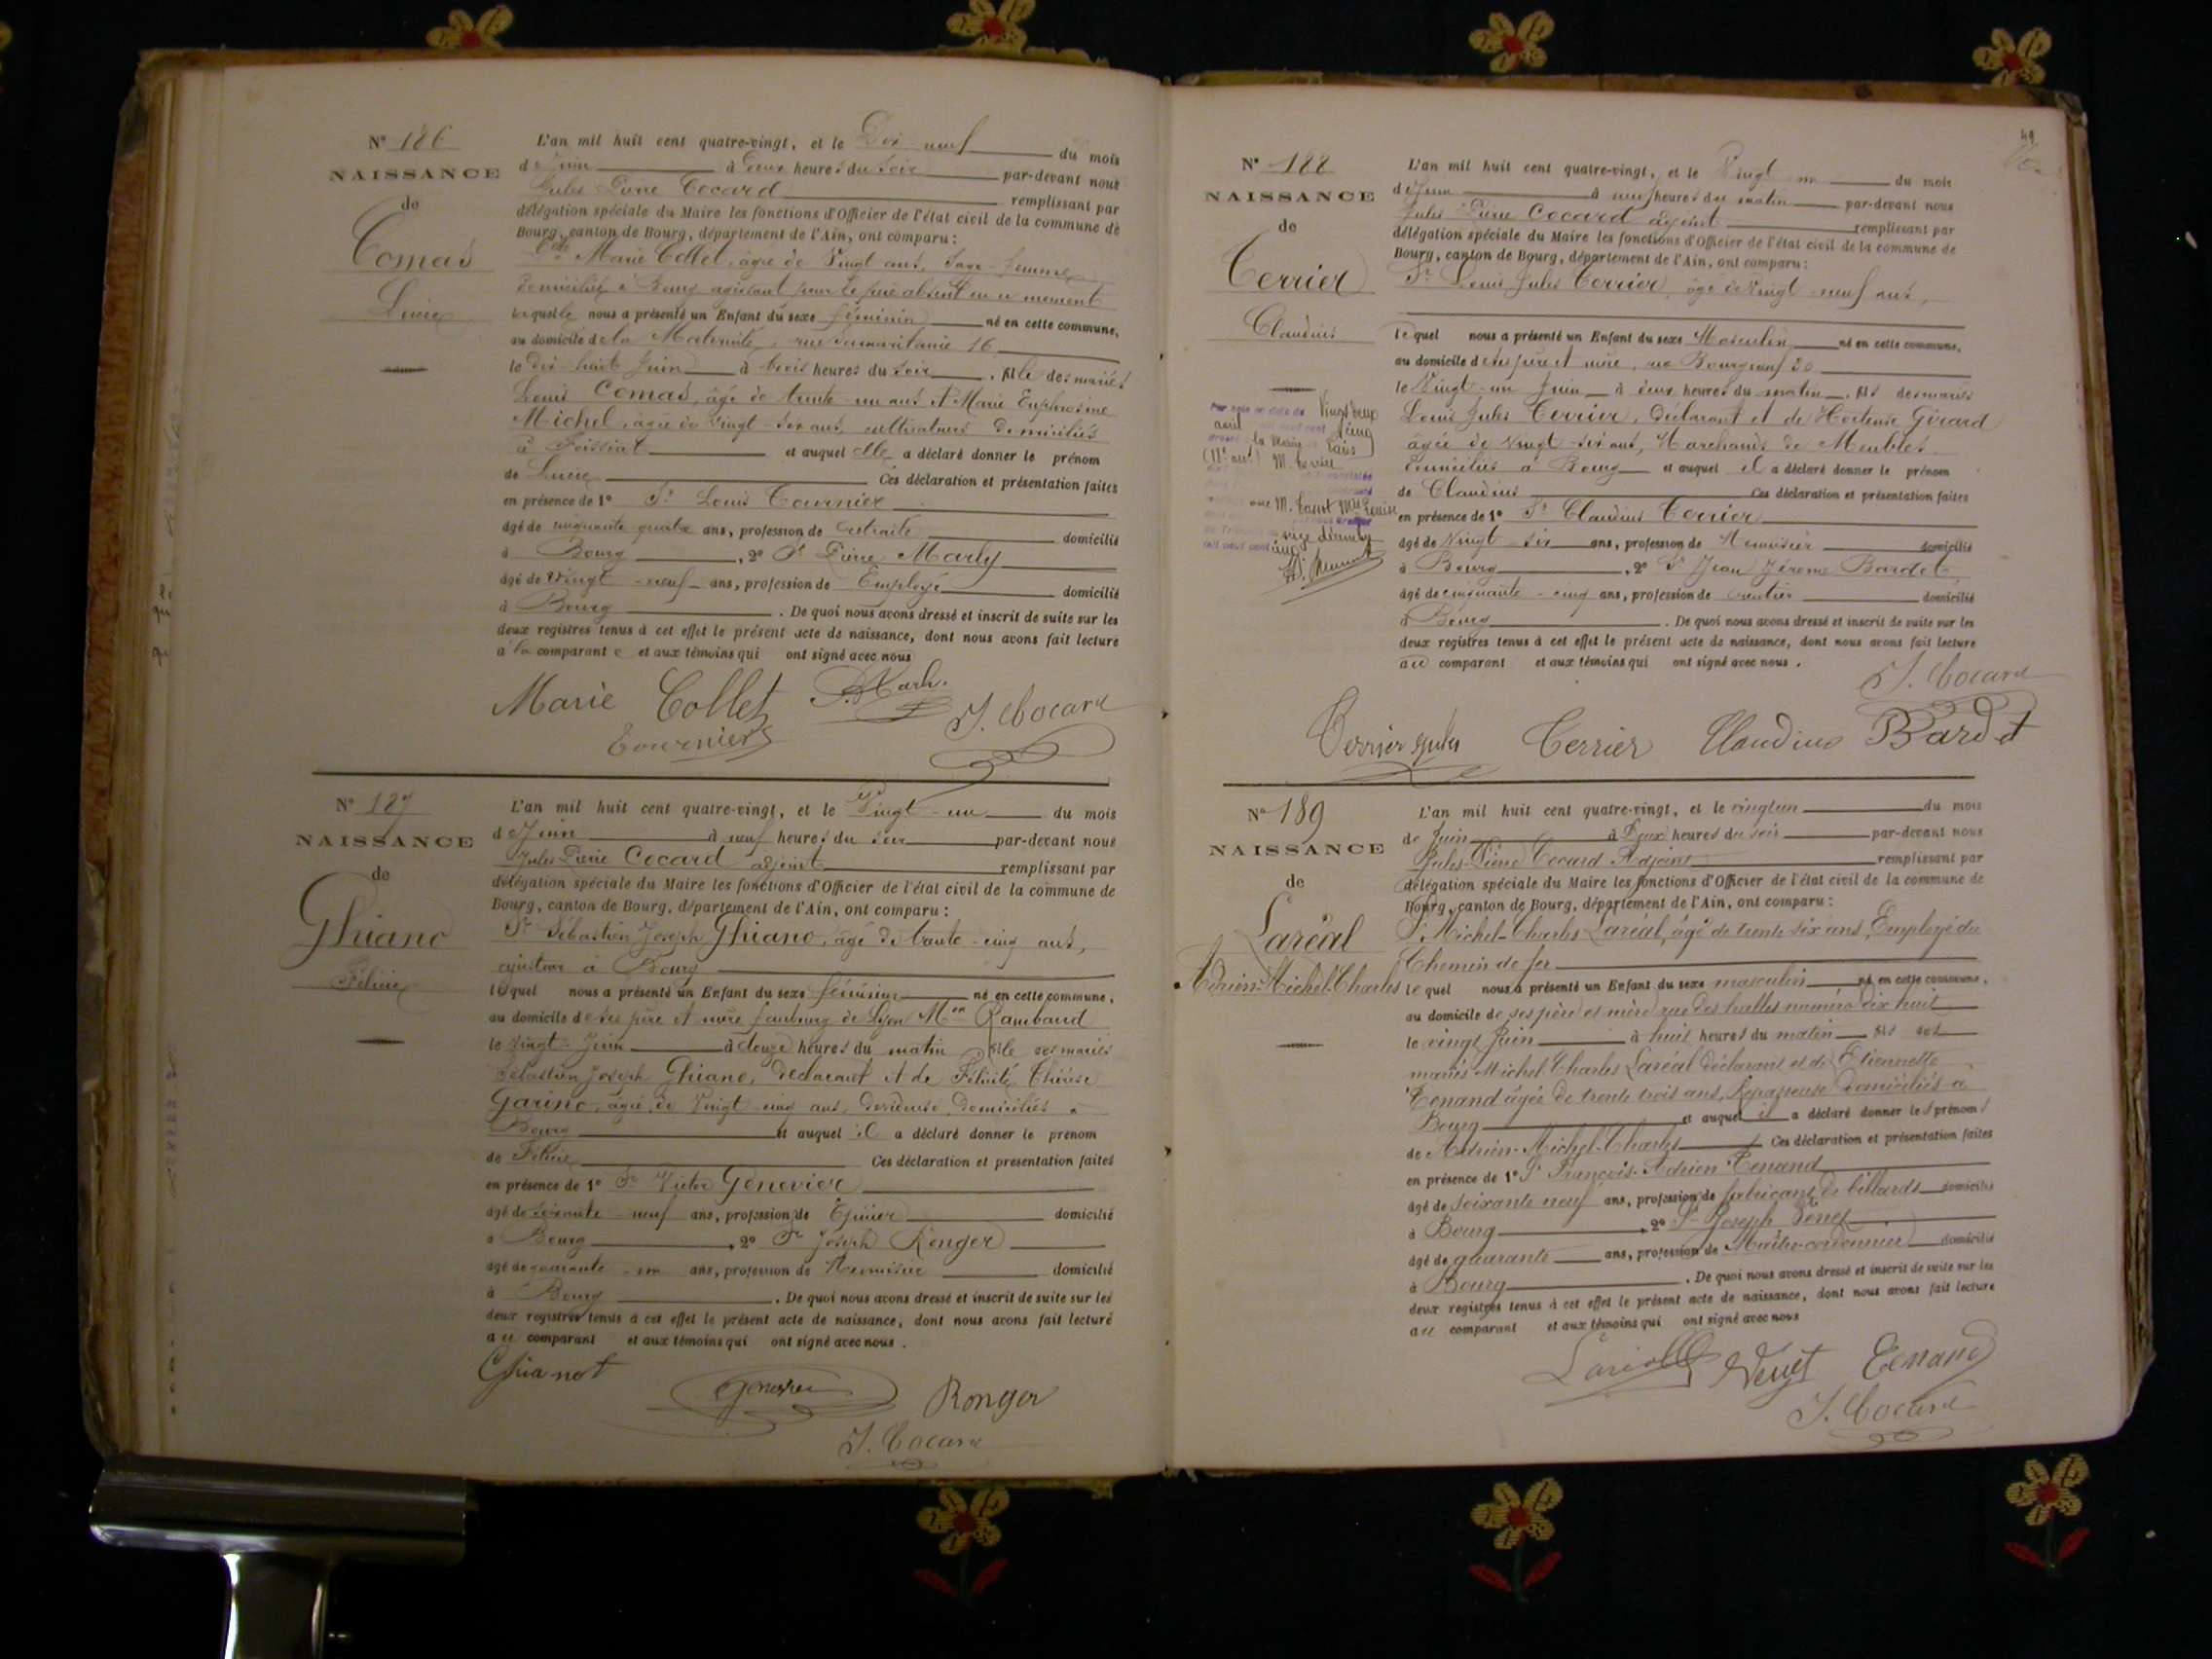 N° 186
NAISSANCE
de
Comas
Lucie
L'an mil huit cent quatre-vingt, et le Dix-neuf du mois
de Juin à Deux heures du soir par-devant nous
Jules Pierre Cocard remplissant par
délégation spéciale du Maire les fonctions d'Officier de l'état civil de la commune de
Bourg, canton de Bourg, département de l'Ain, ont comparu :
Marie Collet, âgée de Vingt ans, Sage-femme
domiciliée à Bourg agissant pour le père absent en ce moment
laquelle nous a présenté un Enfant du sexe féminin né en cette commune,
au domicile de la Maternité, rue Samaritaine 16
le dix-huit Juin à trois heures du soir, fille des mariés
Louis Comas, âgé de trente-un ans et Marie Euphrosine
Michel, âgée de Vingt-six ans, cultivateurs domiciliés
à Foissiat et auquel elle a déclaré donner le prénom
de Lucie Ces déclaration et présentation faites
en présence de 1° Sr Louis Tournier
âgé de cinquante quatre ans, profession de retraité domicilié
à Bourg, 2° Sr Pierre Marly
âgé de Vingt-neuf ans, profession de Employé domicilié
à Bourg. De quoi nous avons dressé et inscrit de suite sur les
deux registres tenus à cet effet le présent acte de naissance, dont nous avons fait lecture
à la comparante et aux témoins qui ont signé avec nous
Marie Collet
Tournier
J. Cocard
N° 187
NAISSANCE
de
Ghiano
Félicie
L'an mil huit cent quatre-vingt, et le Vingt-un du mois
de Juin à neuf heures du soir par-devant nous
Jules Pierre Cocard adjoint remplissant par
délégation spéciale du Maire les fonctions d'Officier de l'état civil de la commune de
Bourg, canton de Bourg, département de l'Ain, ont comparu :
Sr Sébastien Joseph Ghiano, âgé de trente-cinq ans,
ajusteur à Bourg
lequel nous a présenté un Enfant du sexe féminin né en cette commune,
au domicile de ses père et mère faubourg de Lyon Mon Rambaud
le vingt Juin à douze heures du matin fille des mariés
Sébastien Joseph Ghiano, déclarant et de Félicité Thérèse
Garino, âgée de Vingt-cinq ans, domiciliés à
Bourg et auquel il a déclaré donner le prénom
de Félicie Ces déclaration et présentation faites
en présence de 1° Sr Victor Genevier
âgé de soixante-neuf ans, profession de Epicier domicilié
à Bourg, 2° Sr Joseph Ronger
âgé de quarante-un ans, profession de Menuisier domicilié
à Bourg. De quoi nous avons dressé et inscrit de suite sur les
deux registres tenus à cet effet le présent acte de naissance, dont nous avons fait lecture
au comparant et aux témoins qui ont signé avec nous.
Ghianot
Ronger
J. Cocard
49
N° 188
NAISSANCE
de
Terrier
Claudius
L'an mil huit cent quatre-vingt, et le Vingt-un du mois
de Juin à neuf heures du matin par-devant nous
Jules Pierre Cocard adjoint remplissant par
délégation spéciale du Maire les fonctions d'Officier de l'état civil de la commune de
Bourg, canton de Bourg, département de l'Ain, ont comparu :
Sr Louis Jules Terrier, âgé de Vingt-neuf ans,
lequel nous a présenté un Enfant du sexe Masculin né en cette commune,
au domicile de ses père et mère, rue Bourgneuf 30
le Vingt-un Juin à deux heures du matin, fils des mariés
Louis Jules Terrier, Déclarant et de Hortense Girard
âgée de Vingt-six ans, Marchands de Meubles
domiciliés à Bourg et auquel il a déclaré donner le prénom
de Claudius Ces déclaration et présentation faites
en présence de 1° Sr Claudius Terrier
âgé de Vingt-six ans, profession de Menuisier domicilié
à Bourg, 2° Sr Jean Jérome Bardet
âgé de cinquante-cinq ans, profession de rentier domicilié
à Bourg. De quoi nous avons dressé et inscrit de suite sur les
deux registres tenus à cet effet le présent acte de naissance, dont nous avons fait lecture
au comparant et aux témoins qui ont signé avec nous.
Vingt deux
avril
la Mairie
Paris
M. Terrier
J. Cocard
Terrier Jules Terrier Claudius Bardet
N° 189
NAISSANCE
de
Laréal
Adrien-Michel-Charles
L'an mil huit cent quatre-vingt, et le vingt un du mois
de Juin à Deux heures du soir par-devant nous
Jules-Pierre Cocard Adjoint remplissant par
délégation spéciale du Maire les fonctions d'Officier de l'état civil de la commune de
Bourg, canton de Bourg, département de l'Ain, ont comparu :
Sr Michel-Charles Laréal, âgé de trente six ans, Employé du
Chemin de fer
lequel nous a présenté un Enfant du sexe masculin né en cette commune,
au domicile de ses père et mère rue des halles numéro dix huit
le vingt Juin à huit heures du matin fils des
mariés Michel Charles Laréal déclarant et de Etiennette
Renand âgée de trente trois ans, Repasseuse domiciliés à
Bourg et auquel il a déclaré donner les prénoms
de Adrien-Michel-Charles Ces déclaration et présentation faites
en présence de 1° Sr François-Adrien Renand
âgé de soixante neuf ans, profession de fabricant de billards domicilié
à Bourg, 2° Sr Joseph Venet
âgé de quarante ans, profession de Maître-cordonnier domicilié
à Bourg. De quoi nous avons dressé et inscrit de suite sur les
deux registres tenus à cet effet le présent acte de naissance, dont nous avons fait lecture
au comparant et aux témoins qui ont signé avec nous
Venet Renand
J. Cocard